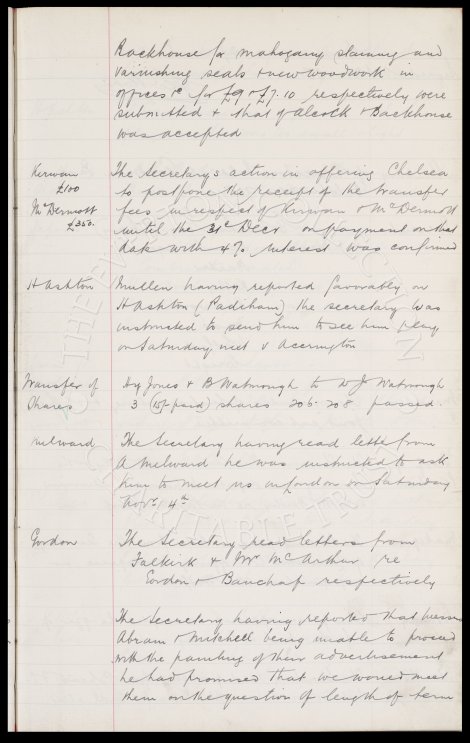 Backhouse for mahogany staining and
varnishing seats & new woodwork in
offices &c for £9 & £7.10 respectively were
submitted & that of Alcock & Backhouse
was accepted
Kirwan
£100
McDermott
£350.
The Secretary's action in offering Chelsea
to postpone the receipt of the transfer
fees in respect of Kirwan & McDermott
until the 31st Decr on payment on that
date with 4% interest was confirmed
H Ashton
Mullen having reported favorably on
H Ashton (Padiham) the secretary was
instructed to send him to see him play
on Saturday next v Accrington
Transfer of
Shares
Hy Jones & B Watmough to W J Watmough
3 (15/- paid) shares 206. 208 passed.
Milward
The Secretary having read letter from
A Milward he was instructed to ask
him to meet us in London on Saturday
Novr. 4th
Gordon
The Secretary read letters from
Falkirk & Mr McArthur re
Gordon & Bauchop respectively
The Secretary having reported that Messrs
Abram & Mitchell being unable to proceed
with the painting of their advertisement
he had promised that we would meet
them on the question of length of term
THE EVERTON COLLECTION
CHARITABLE TRUST